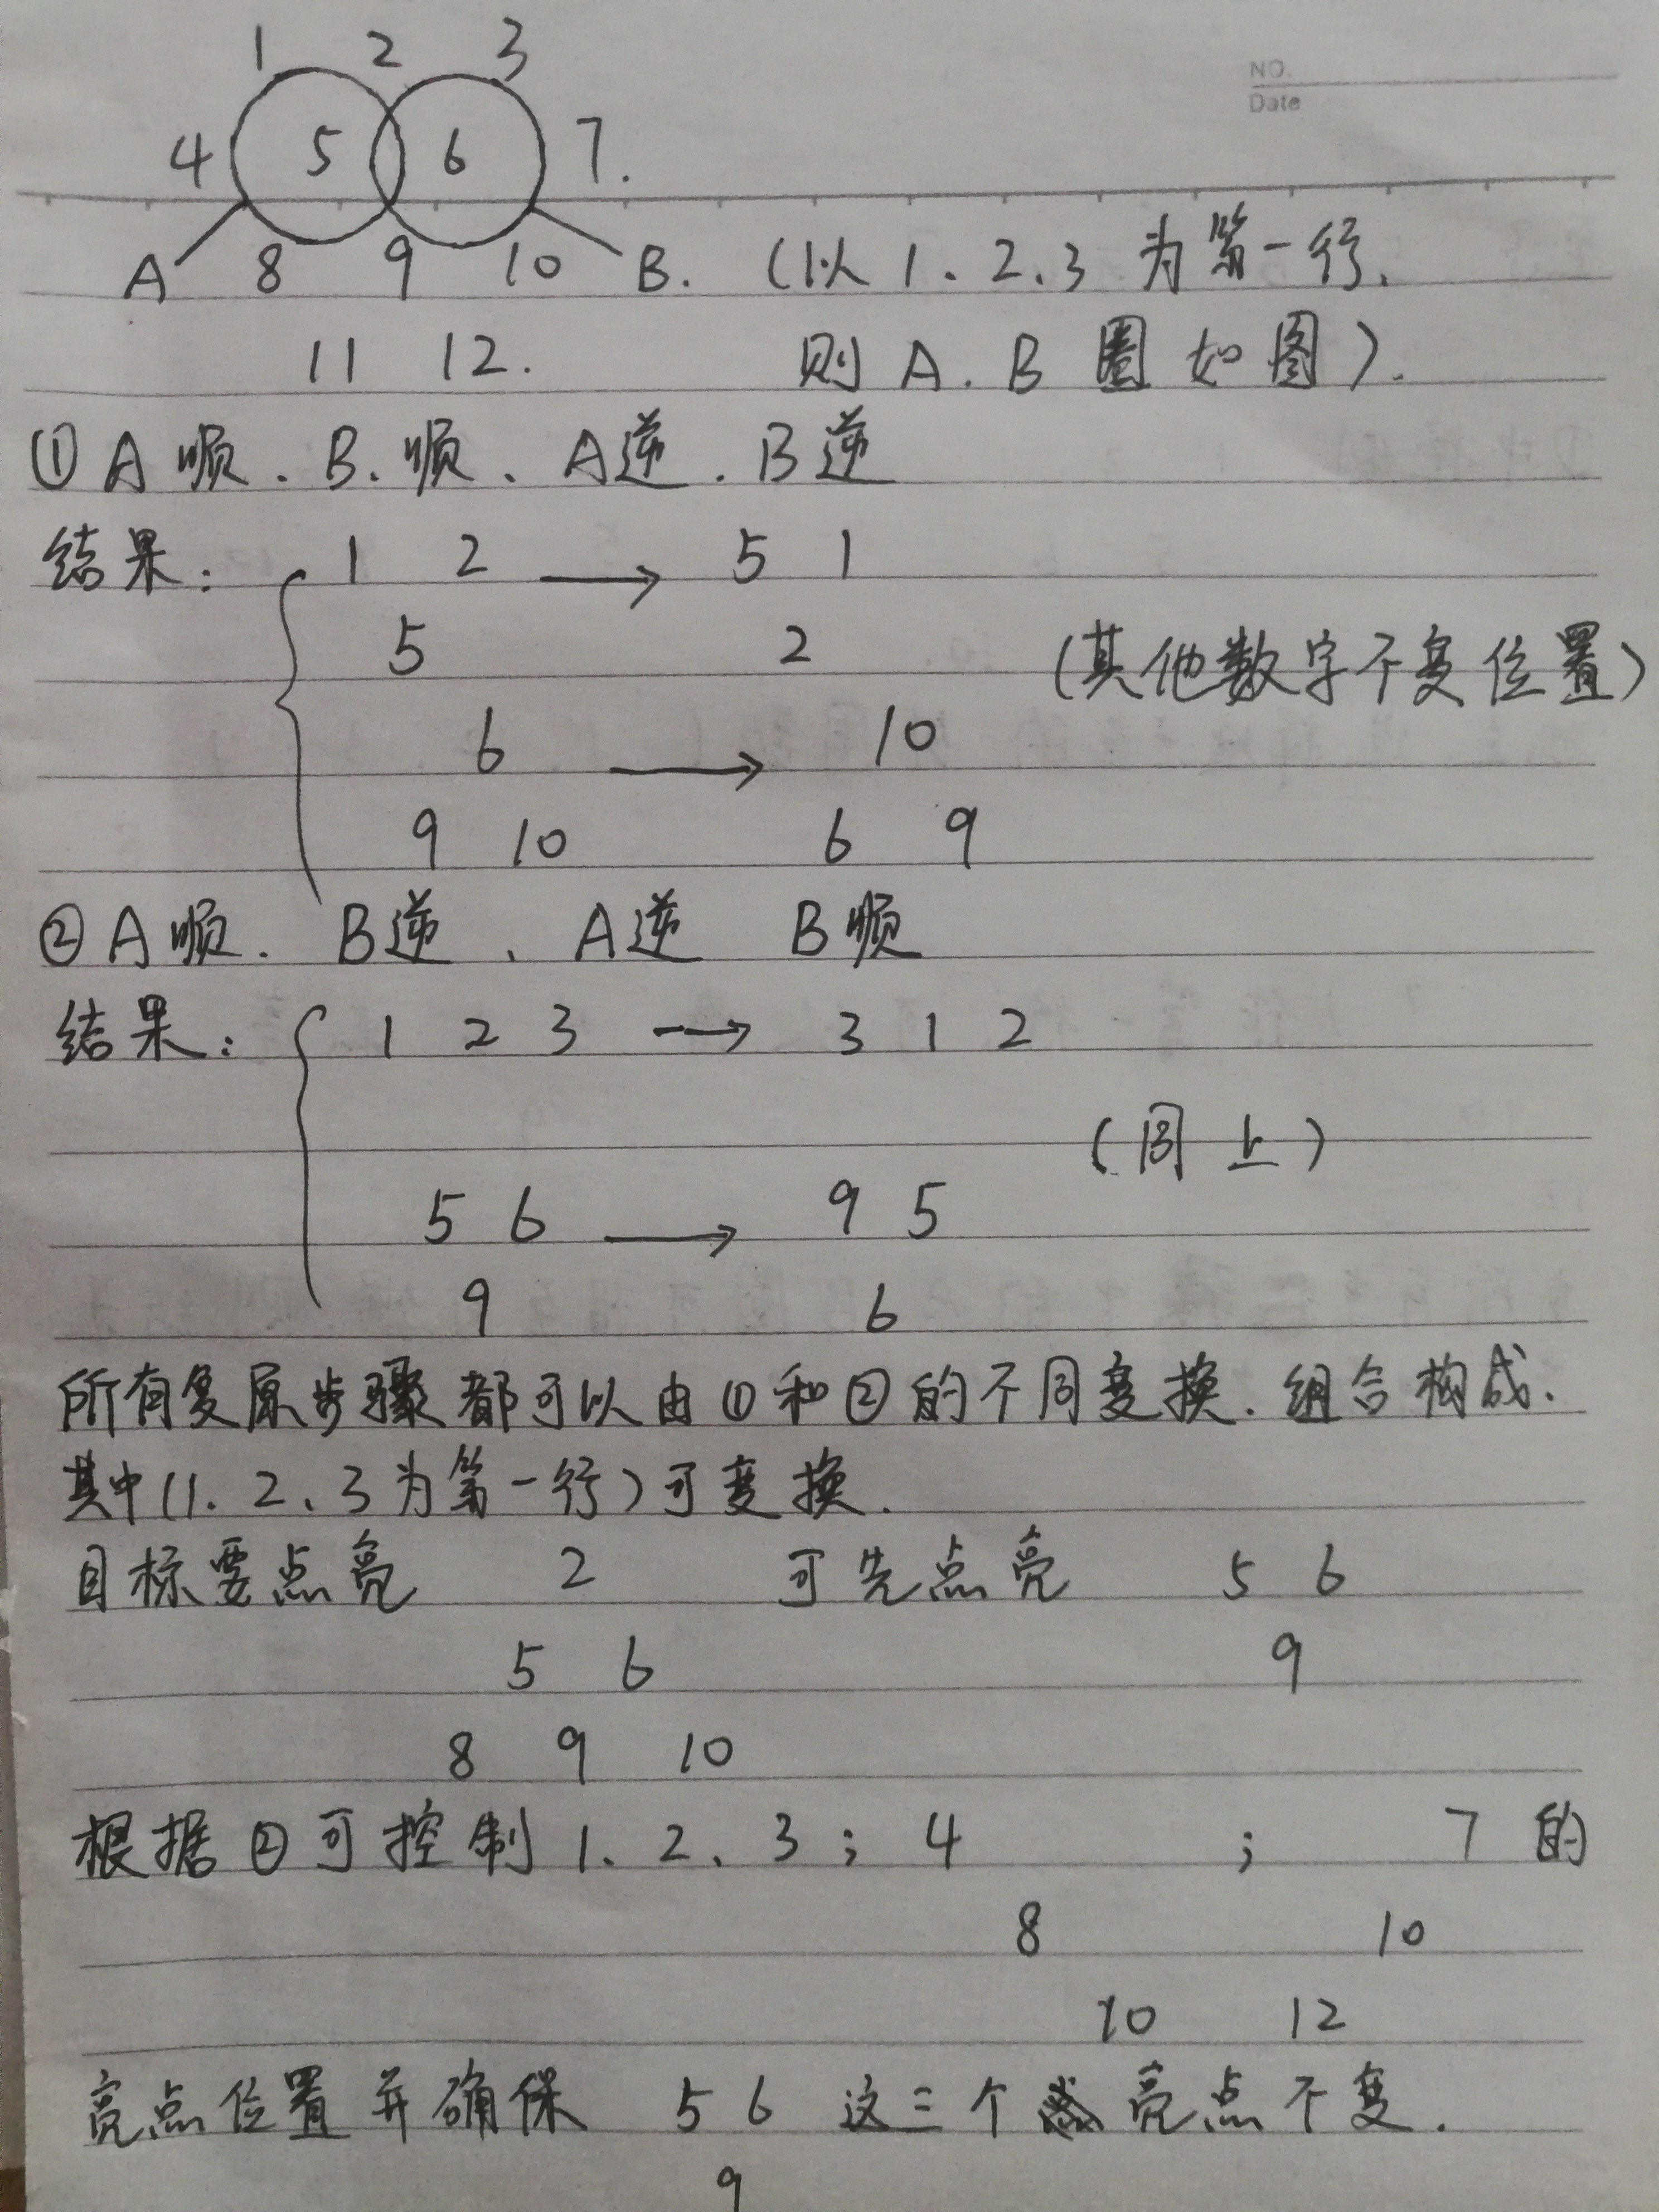 NO.
Date
1 2 3
4 5 6 7.
A 8 9 10 B. (以 1、2、3 为第一行,
11 12. 则 A、B 圈 如图).
①A顺、B、顺、A逆、B逆
结果: 1 2 → 5 1
5 2 (其他数字不变位置)
6 → 10
9 10 6 9
②A顺. B逆、A逆 B顺
结果: 1 2 3 → 3 1 2
(同上)
5 6 → 9 5
9 6
所有复原步骤都可以由①和②的不同变换.组合构成.
其中(1、2、3为第一行)可变换.
目标要点亮 2 可先点亮 5 6
5 6 9
8 9 10
根据②可控制1、2、3; 4 ; 7 的
8 10
10 12
亮点位置并确保 5 6 这三个亮点不变.
9